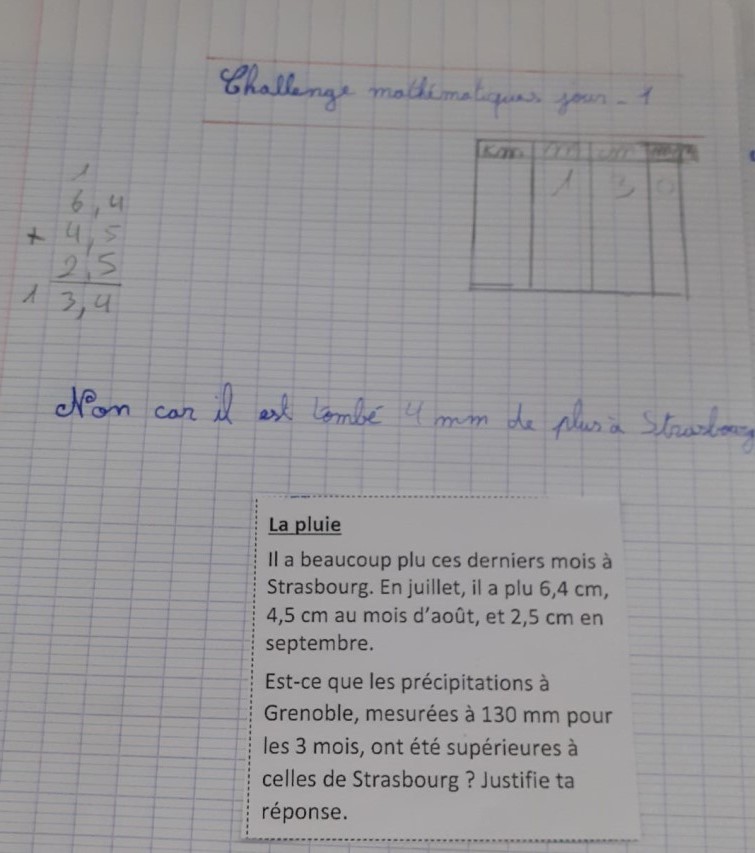 Challenge mathématiques jour - 1
km m cm mm
1 3 0
1
6,4
+ 4,5
2,5
1 3,4
Non car il est tombé 4 mm de plus à Strasbourg
La pluie
Il a beaucoup plu ces derniers mois à
Strasbourg. En juillet, il a plu 6,4 cm,
4,5 cm au mois d'août, et 2,5 cm en
septembre.
Est-ce que les précipitations à
Grenoble, mesurées à 130 mm pour
les 3 mois, ont été supérieures à
celles de Strasbourg ? Justifie ta
réponse.